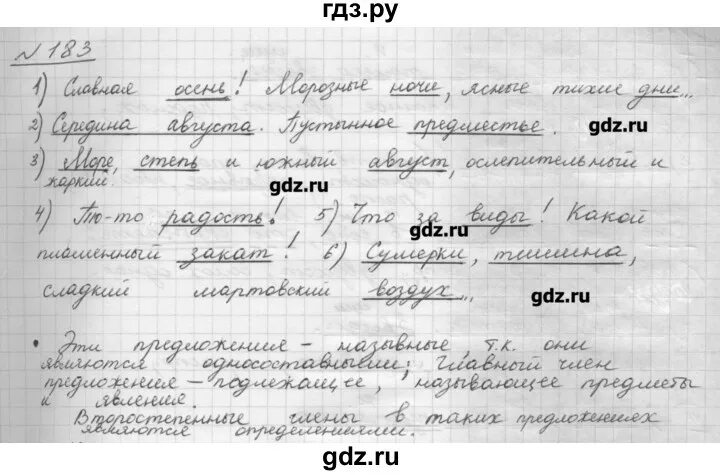 гдз.ру
№183
1) Славная осень! Морозные ночи, ясные тихие дни...
2) Середина августа. Пустынное предместье.
gdz.ru
3) Море, степь и южный август, ослепительный и
жаркий.
gdz.ru
gdz.ru
4) То-то радость! 5) Что за виды! Какой
пламенный закат! 6) Сумерки, тишина,
gdz.ru
gdz.ru
сладкий мартовский воздух...
• Эти предложения - назывные т.к. они
являются односоставными; Главный член
предложения - подлежащее, называющее предметы
и явления.
Второстепенные члены в таких предложениях
являются определениями.
gdz.ru
gdz.ru